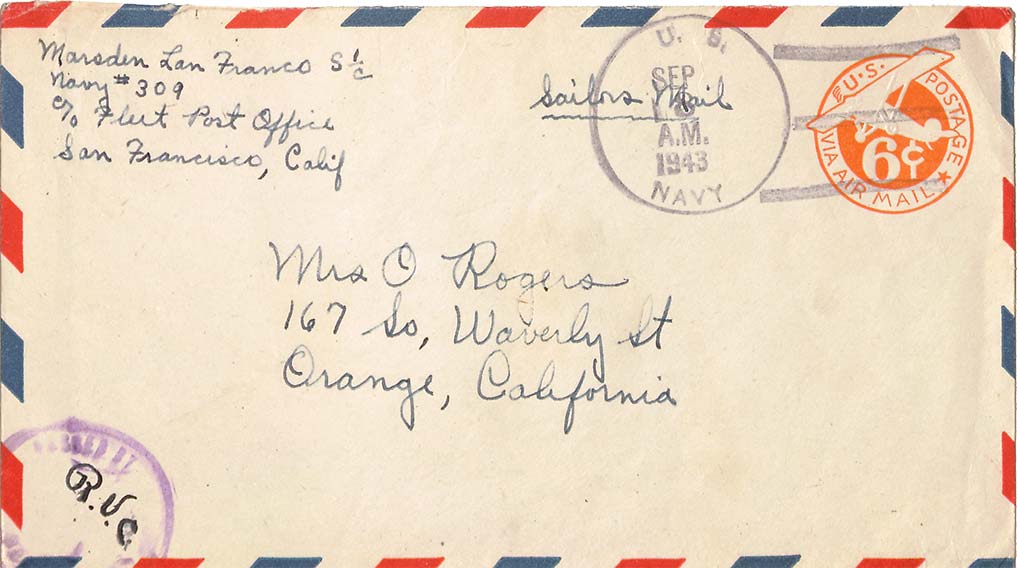 Marsden Lan Franco S 1/c
Navy # 309
c/o Fleet Post Office
San Francisco, Calif
Sailors Mail
U. S.
SEP
A.M.
1943
NAVY
U.S. POSTAGE
6¢
VIA AIR MAIL
Mrs O Rogers
167 So, Waverly St
Orange, California
PASSED BY
R.V.C